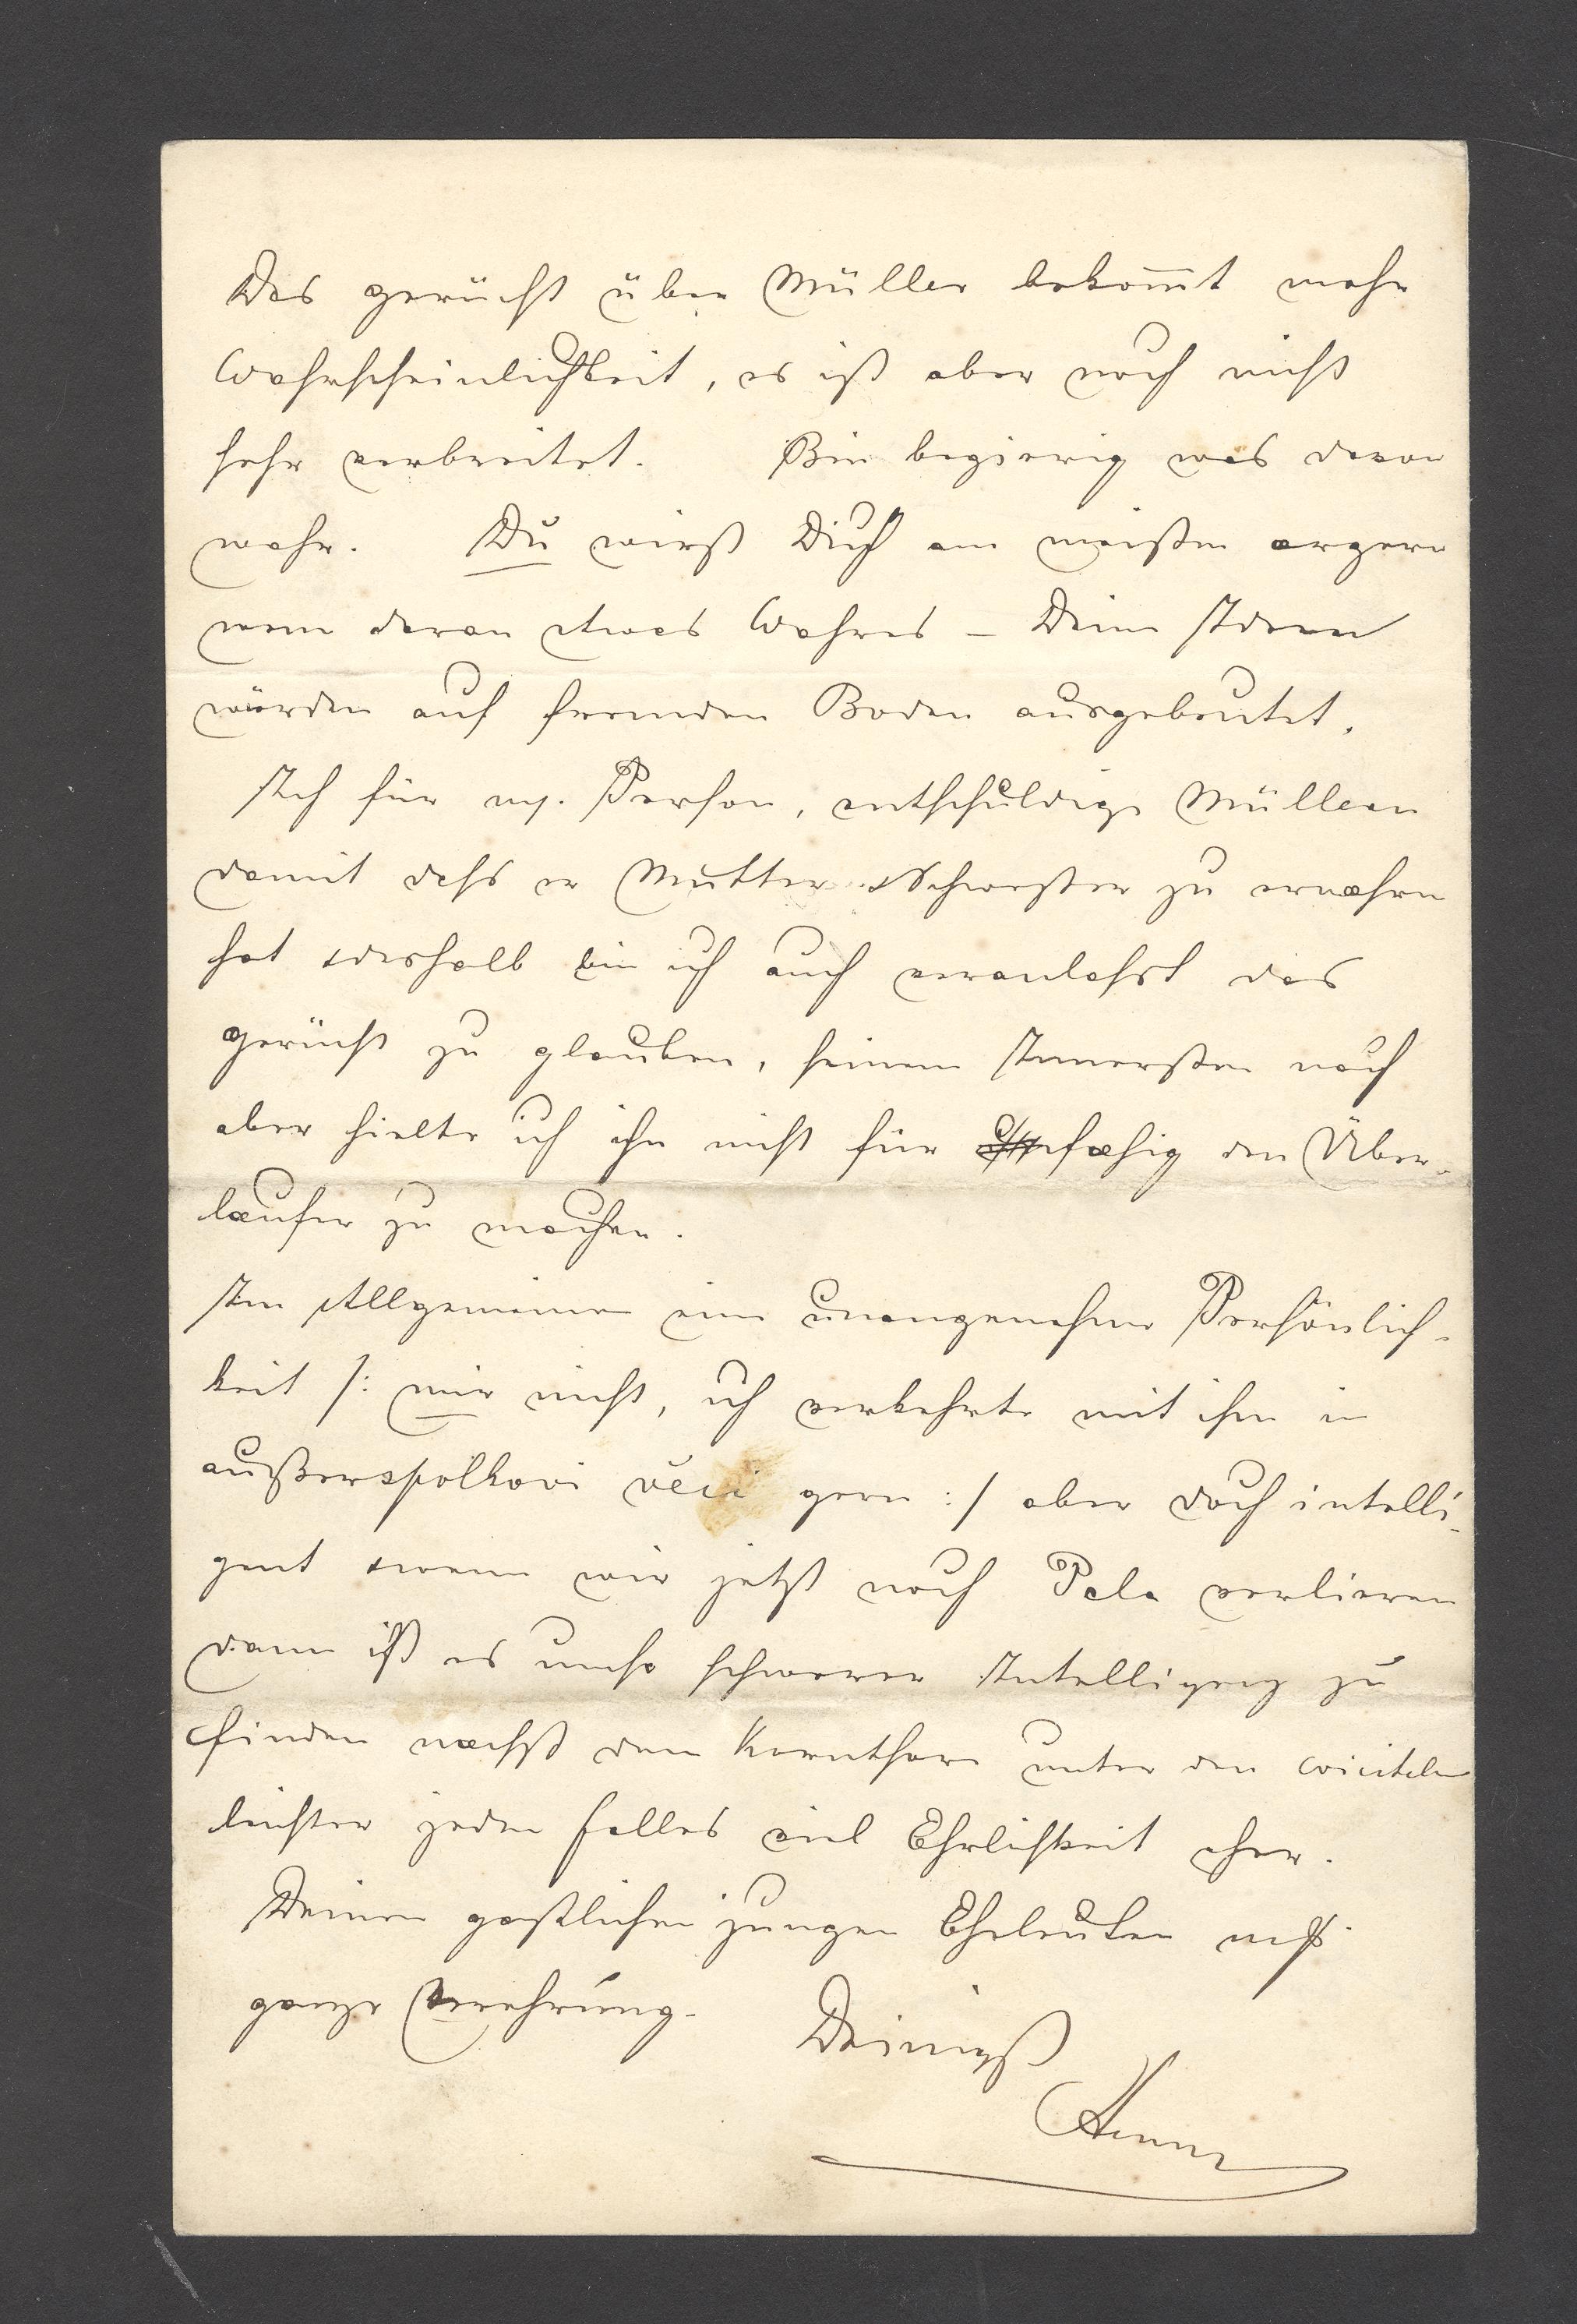 Das gerücht über Müller bekom̅t mehr
Wahrscheinlichkeit, es ist aber noch nicht
sehr verbreitet. Bin begierig was davon
wahr. Du wirst Dich am meisten ärgern
wenn daran etwas Wahres – Deine Ideen
würden auf fremden Boden ausgebeutet.
Ich für m. Person, entschuldige Müllern
damit dass er Mutter & Schwester zu ernæhren
hat & deshalb bin ich auch veranlasst das
gerücht zu glauben, seinem Innersten nach
aber hielte ich ihn nicht für fæhig den Über-
læufer zu machen.
Im Allgemeinen eine unangenehme Persönlich-
keit /: mir nicht, ich verkehrte mit ihm in
außerspolkovi věci gern :/ aber doch intelli-
gent & wenn wir jetzt noch Pala verlieren
dann ist es umso schwerer Intelligenz zu
finden næchst dem Kornthore unter den
leichter jeden falles viel Ehrlichkeit eher.
Deinen gastlichen jungen Eheleuten
ganze Verehrung. Deinigst